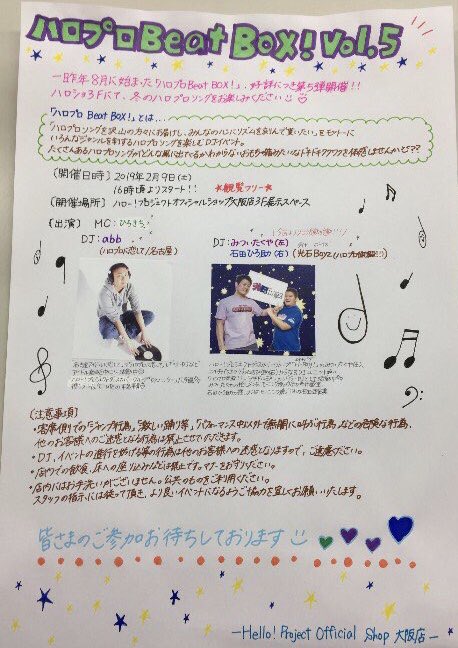 ハロプロBeat Box! Vol.5
一昨年8月に始まった「ハロプロBeat Box!」、好評につき第5弾開催!!
ハロショ3Fにて、冬のハロプロソングをお楽しみください
「ハロプロ Beat Box!」とは…
「ハロプロソングを沢山の方々にお届けし、みんなのハートにリズムを刻んで貰いたい」をモットーに
いろんなジャンルを制するハロプロソングを楽しむDJイベント。
たくさんあるハロプロソングがどんな風に出てくるかわからないおもちゃ箱みたいなドキドキワクワクを体感しませんか???
〔開催日時〕2019年2月9日(土)
16時よりスタート!! *観覧フリー*
〔開催場所〕ハロー!プロジェクトオフィシャルショップ大阪店3F展示スペース
〔出演〕 MC:ひろきち
DJ:abb
(ハロプロに恋して/名古屋)
DJ:みついたくや(左)
石田ひろ助(右)(光石Boyz/ハロプロ
〔注意事項〕
・客席側での「ジャンプ行為」「激しい踊り等」「パフォーマンス中以外で無闇に叫ぶ行為」などの危険な行為、
他のお客様へのご迷惑となる行為は禁止させて頂きます。
・DJ、イベントの進行を妨げる等の行為は他のお客様への迷惑となりますので、ご遠慮ください。
・店内での飲食、床への座り込みなどは禁止です。マナーをお守りください。
・店内にはお手洗いがございません。公共のものをご利用ください。
スタッフの指示には従って頂き、より良いイベントになるようご協力を宜しくお願いいたします。
皆さまのご参加お待ちしております
-Hello! Project Official Shop 大阪店-